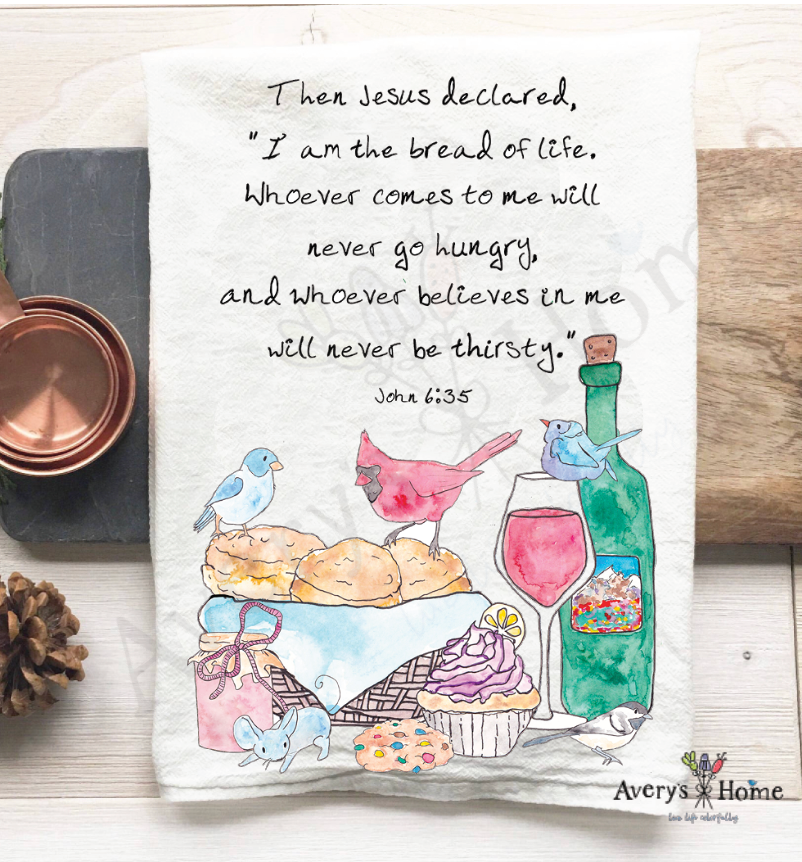 Then Jesus declared,
"I am the bread of life.
Whoever comes to me will
never go hungry,
and whoever believes in me
will never be thirsty."
John 6:35
Avery's Home
live life colorfully